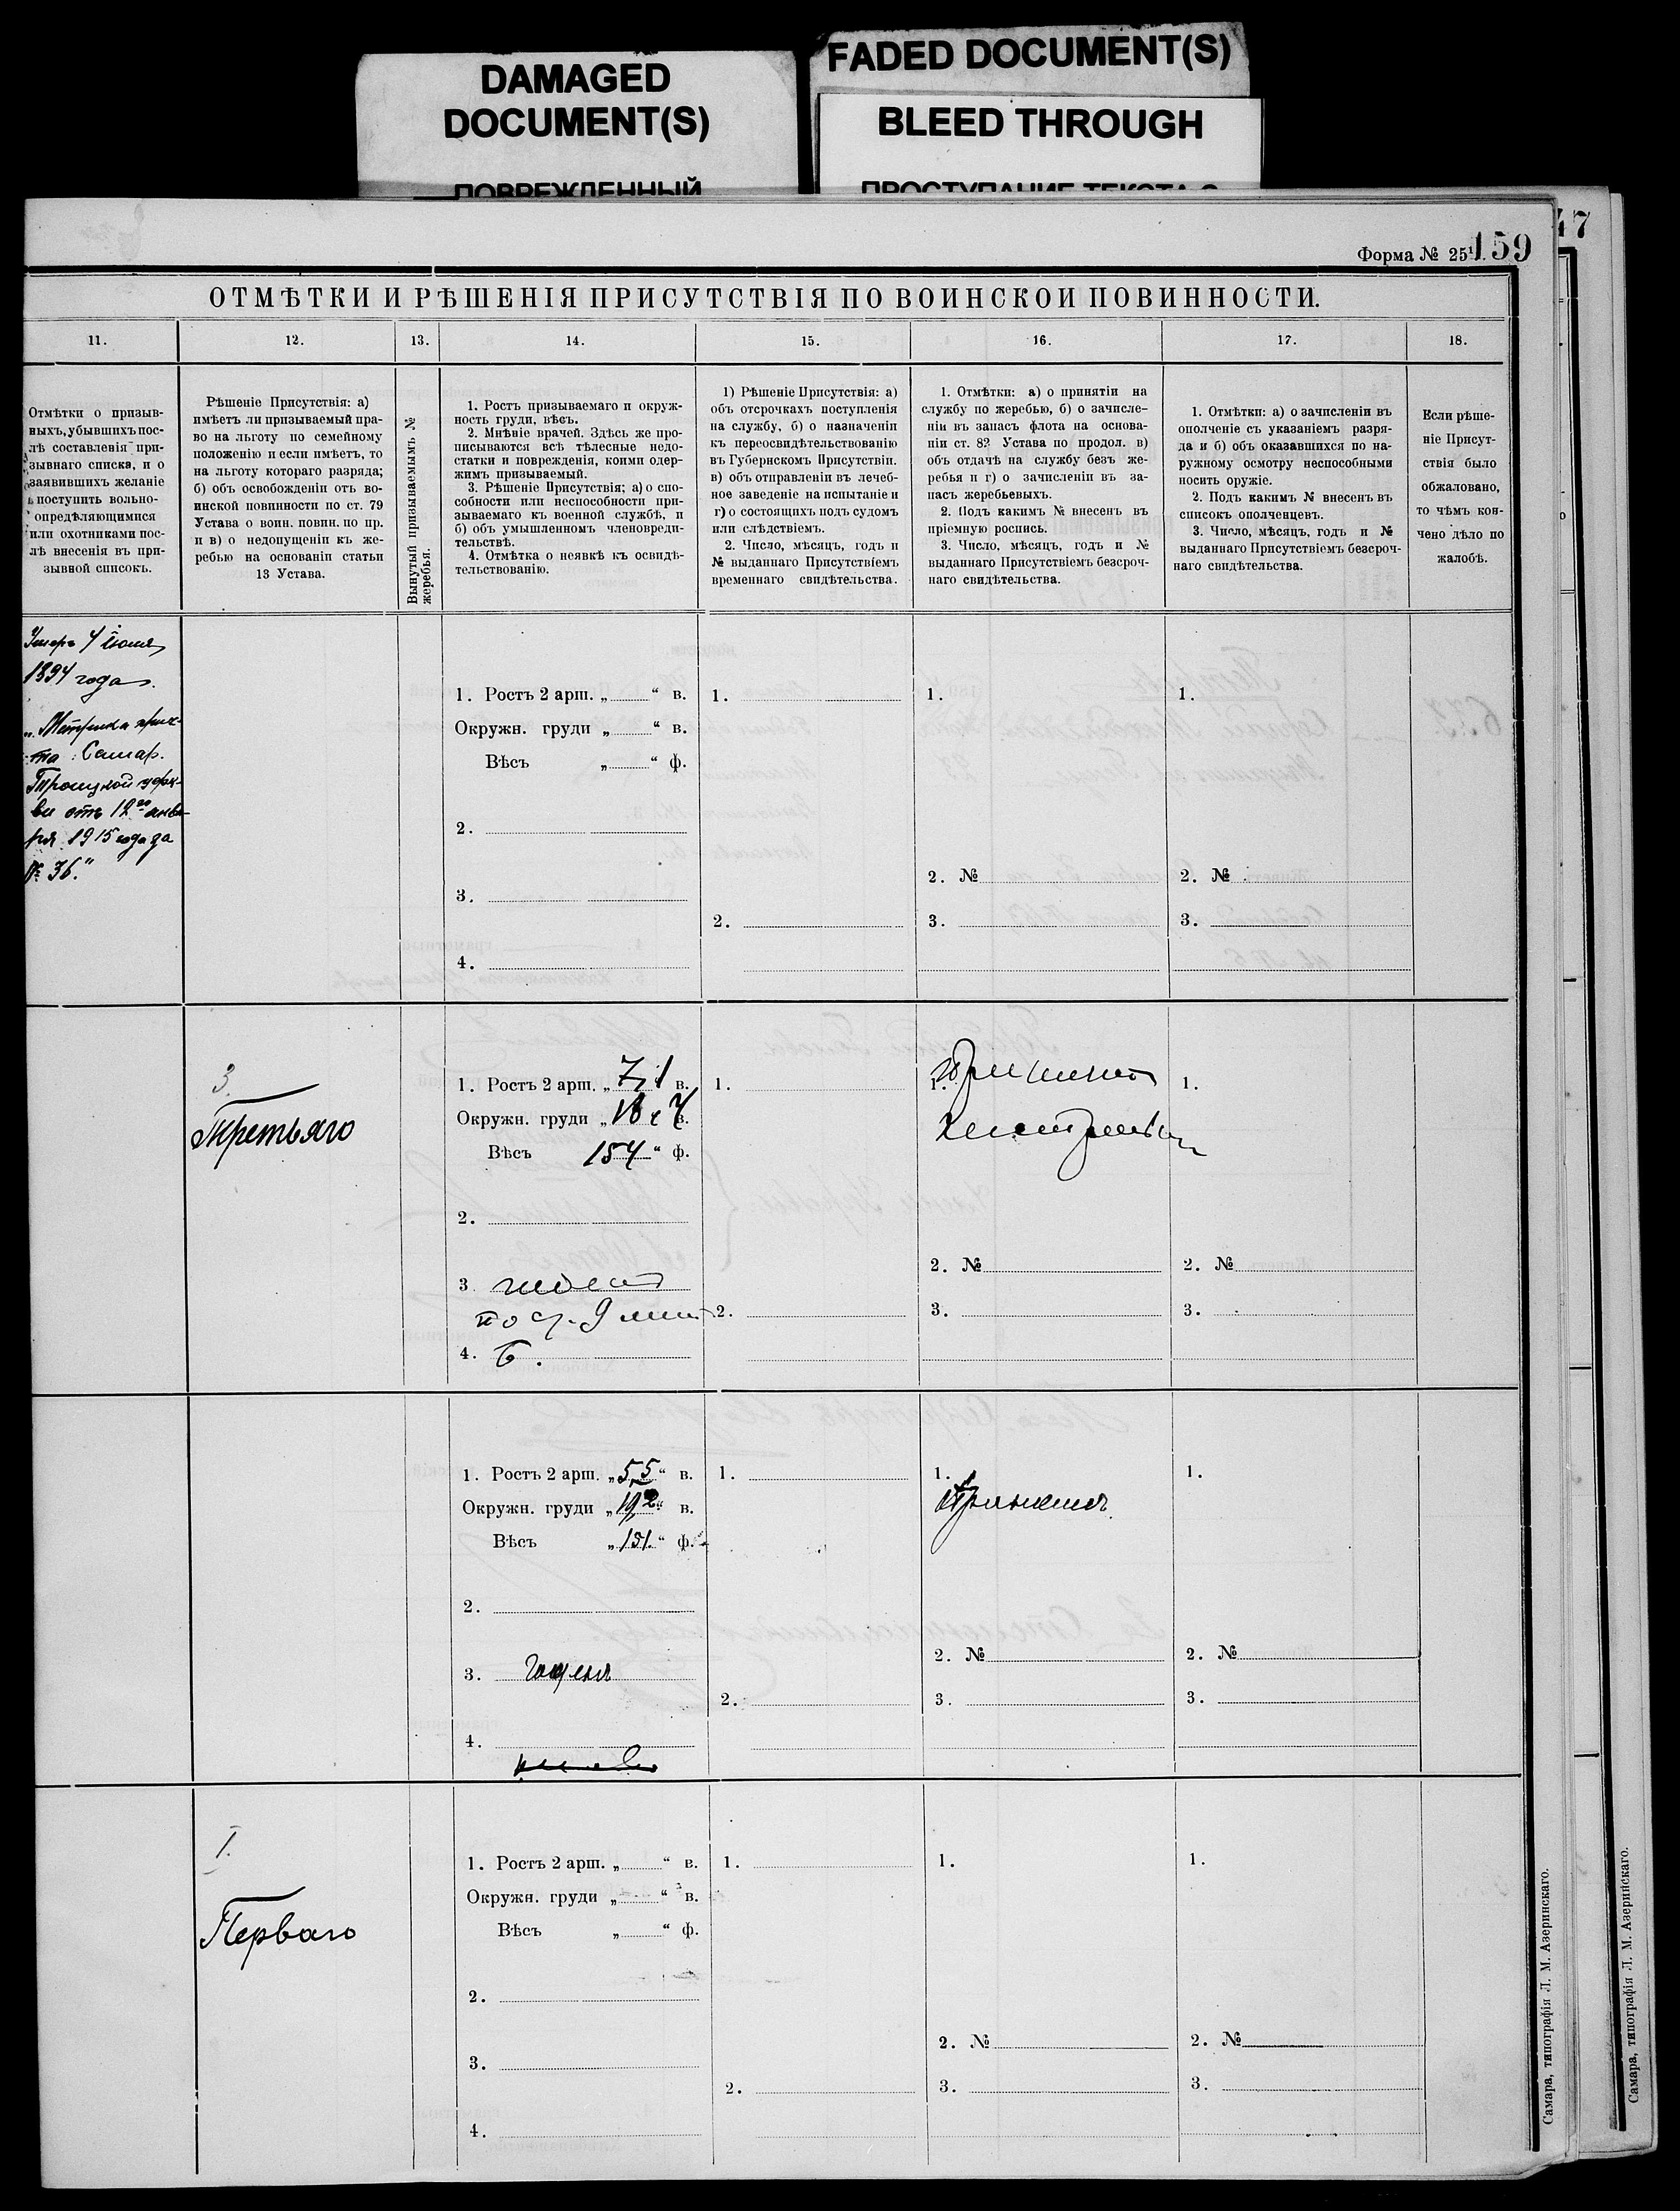 DAMAGED
DOCUMENT(S)
ПОВРЕЖДЕННЫЙ
FADED DOCUMENT(S)
BLEED THROUGH
ПРОСТУПАНИЕ ТЕКСТА С
47
Форма № 25¹.
159
ОТМѢТКИ И РѢШЕНІЯ ПРИСУТСТВІЯ ПО ВОИНСКОЙ ПОВИННОСТИ.
11.
12.
13.
14.
15.
16.
17.
18.
Отмѣтки о призыв-
ныхъ, убывшихъ пос-
лѣ составленія при-
зывнаго списка, и о
заявившихъ желаніе
поступить вольно-
опредѣляющимися
или охотниками пос-
лѣ внесенія въ при-
зывной списокъ.
Рѣшеніе Присутствія: а)
имѣетъ ли призываемый пра-
во на льготу по семейному
положенію и если имѣетъ, то
на льготу котораго разряда;
б) объ освобожденіи отъ во-
инской повинности по ст. 79
Устава о воин. повин. по пр.
и в) о недопущеніи къ же-
ребью на основаніи статьи
13 Устава.
Вынутый призываемымъ №
жеребья.
1. Ростъ призываемаго и окруж-
ность груди, вѣсъ.
2. Мнѣніе врачей. Здѣсь же про-
писываются всѣ тѣлесные недо-
статки и поврежденія, коими одер-
жимъ призываемый.
3. Рѣшеніе Присутствія; а) о спо-
собности или неспособности при-
зываемаго къ военной службѣ, и
б) объ умышленномъ членовреди-
тельствѣ.
4. Отмѣтка о неявкѣ къ освидѣ-
тельствованію.
1) Рѣшеніе Присутствія: а)
объ отсрочкахъ поступленія
на службу, б) о назначеніи
къ переосвидѣтельствованію
въ Губернскомъ Присутствіи.
в) объ отправленіи въ лечеб-
ное заведеніе на испытаніе и
г) о состоящихъ подъ судомъ
или слѣдствіемъ.
2. Число, мѣсяцъ, годъ и
№ выданнаго Присутствіемъ
временнаго свидѣтельства.
1. Отмѣтки: а) о принятіи на
службу по жеребью, б) о зачисле-
ніи въ запасъ флота на основа-
ніи ст. 82 Устава по продол. в)
объ отдачѣ на службу безъ же-
ребья и г) о зачисленіи въ за-
пасъ жеребьевыхъ.
2. Подъ какимъ № внесенъ въ
пріемную роспись.
3. Число, мѣсяцъ, годъ и №
выданнаго Присутствіемъ безсроч-
наго свидѣтельства.
1. Отмѣтки: а) о зачисленіи въ
ополченіе съ указаніемъ разря-
да и б) объ оказавшихся по на-
ружному осмотру неспособными
носить оружіе.
2. Подъ какимъ № внесенъ въ
списокъ ополченцевъ.
3. Число, мѣсяцъ, годъ и №
выданнаго Присутствіемъ безсроч-
наго свидѣтельства.
Если рѣше-
ніе Присут-
ствія было
обжаловано,
то чѣмъ кон-
чено дѣло по
жалобѣ.
Умеръ 4 іюля
1894 года.
„Метрика прич-
та Самар.
Троицкой церк-
ви отъ 12го янва-
ря 1915 года за
№ 36."
1. Ростъ 2 арш. „ “ в.
Окружн. груди „ “ в.
Вѣсъ „ “ ф.
2.
3.
4.
1.
2.
1.
2. №
3.
1.
2. №
3.
3.
Третьяго
1. Ростъ 2 арш. „ 7,1 в.
Окружн. груди „ 18 ч 7 в.
Вѣсъ 154 “ ф.
2.
3.
4. Б.
1.
2.
1. Принятъ
2. №
3.
1.
2. №
3.
1. Ростъ 2 арш. „ 5,5 “ в.
Окружн. груди „ 19,2 “ в.
Вѣсъ „ 151. “ ф.
2.
3. Годенъ
4.
1.
2.
1. Принятъ
2. №
3.
1.
2. №
3.
I.
Перваго
1. Ростъ 2 арш. „ “ в.
Окружн. груди „ “ в.
Вѣсъ „ “ ф.
2.
3.
4.
1.
2.
1.
2. №
3.
1.
2. №
3.
Самара, типографія Л. М. Азеринскаго.
Самара, типографія Л. М. Азеринскаго.